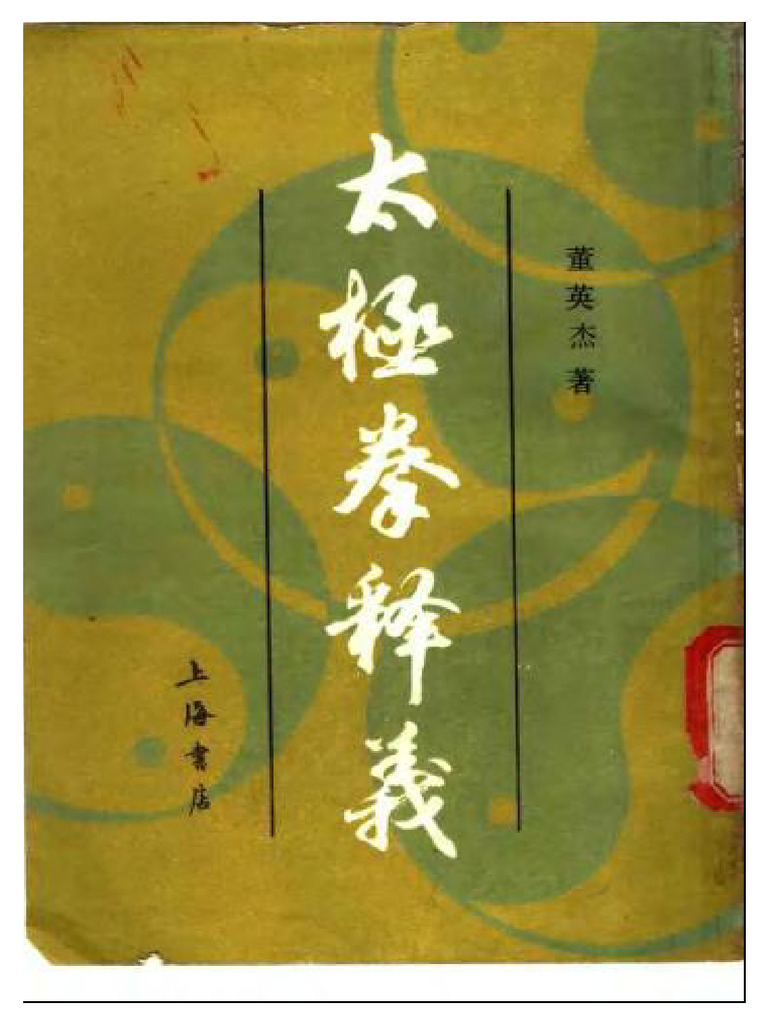 董英杰著
太極拳释義
上海書店